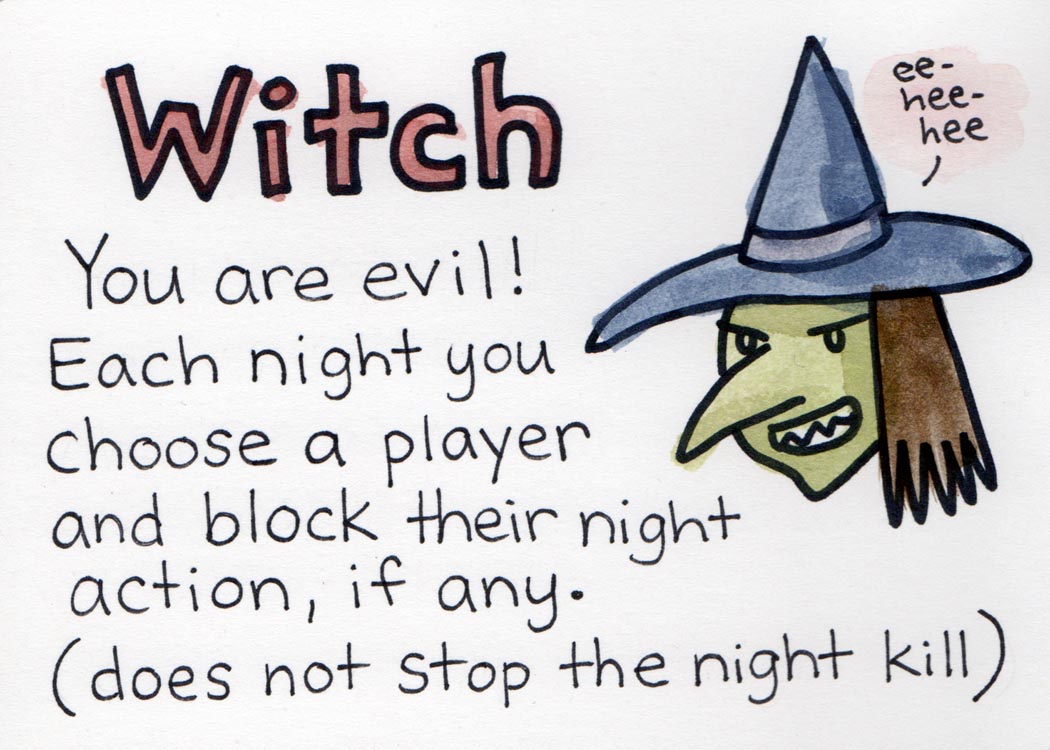 Witch
ee-
hee-
hee
You are evil!
Each night you
choose a player
and block their night
action, if any.
(does not stop the night kill)